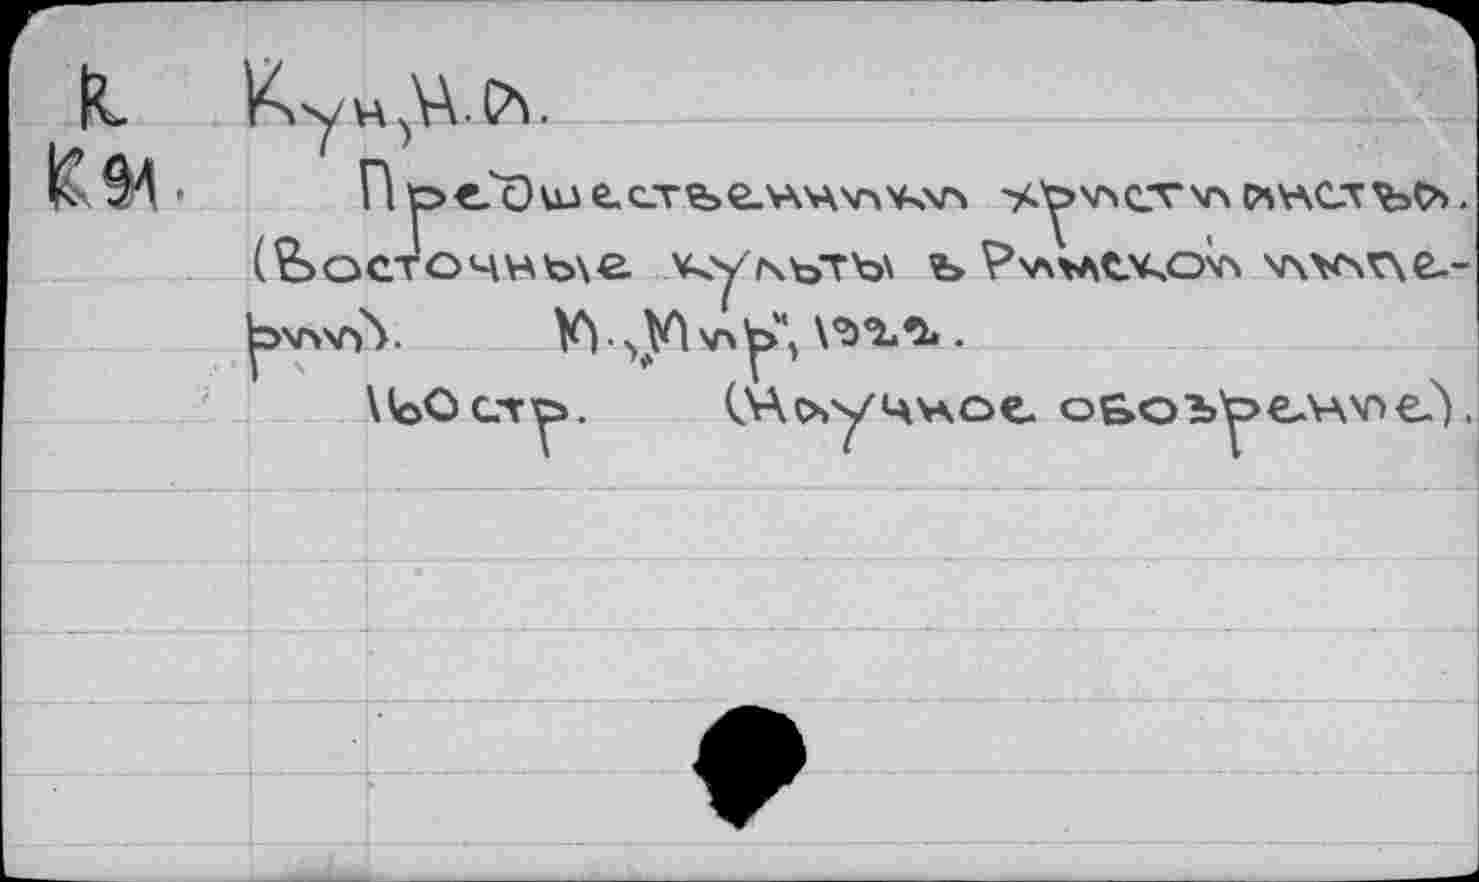 К Кун, Н.А.
К 91. Предшественники христианства.
(Восточные культы в Римской импе-
рии). М. „Мир", 1922.
160 стр. (Научное обозрение).